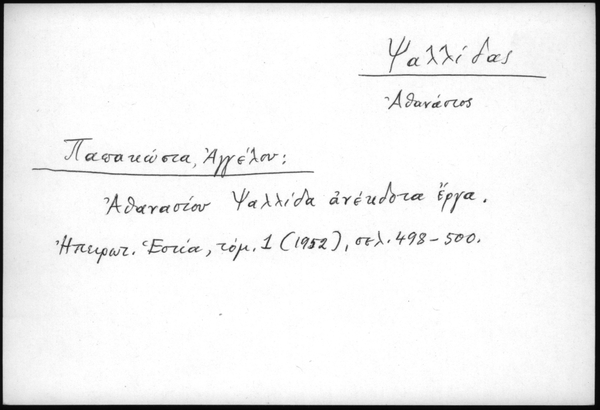 Ψαλλίδας
Ἀθανάσιος
Παπακώστα, Ἀγγέλου:
Ἀθανασίου Ψαλλίδα ἀνέκδοτα ἔργα.
Ἠπειρωτ. Ἑστία, τόμ. 1 (1952), σελ. 498-500.